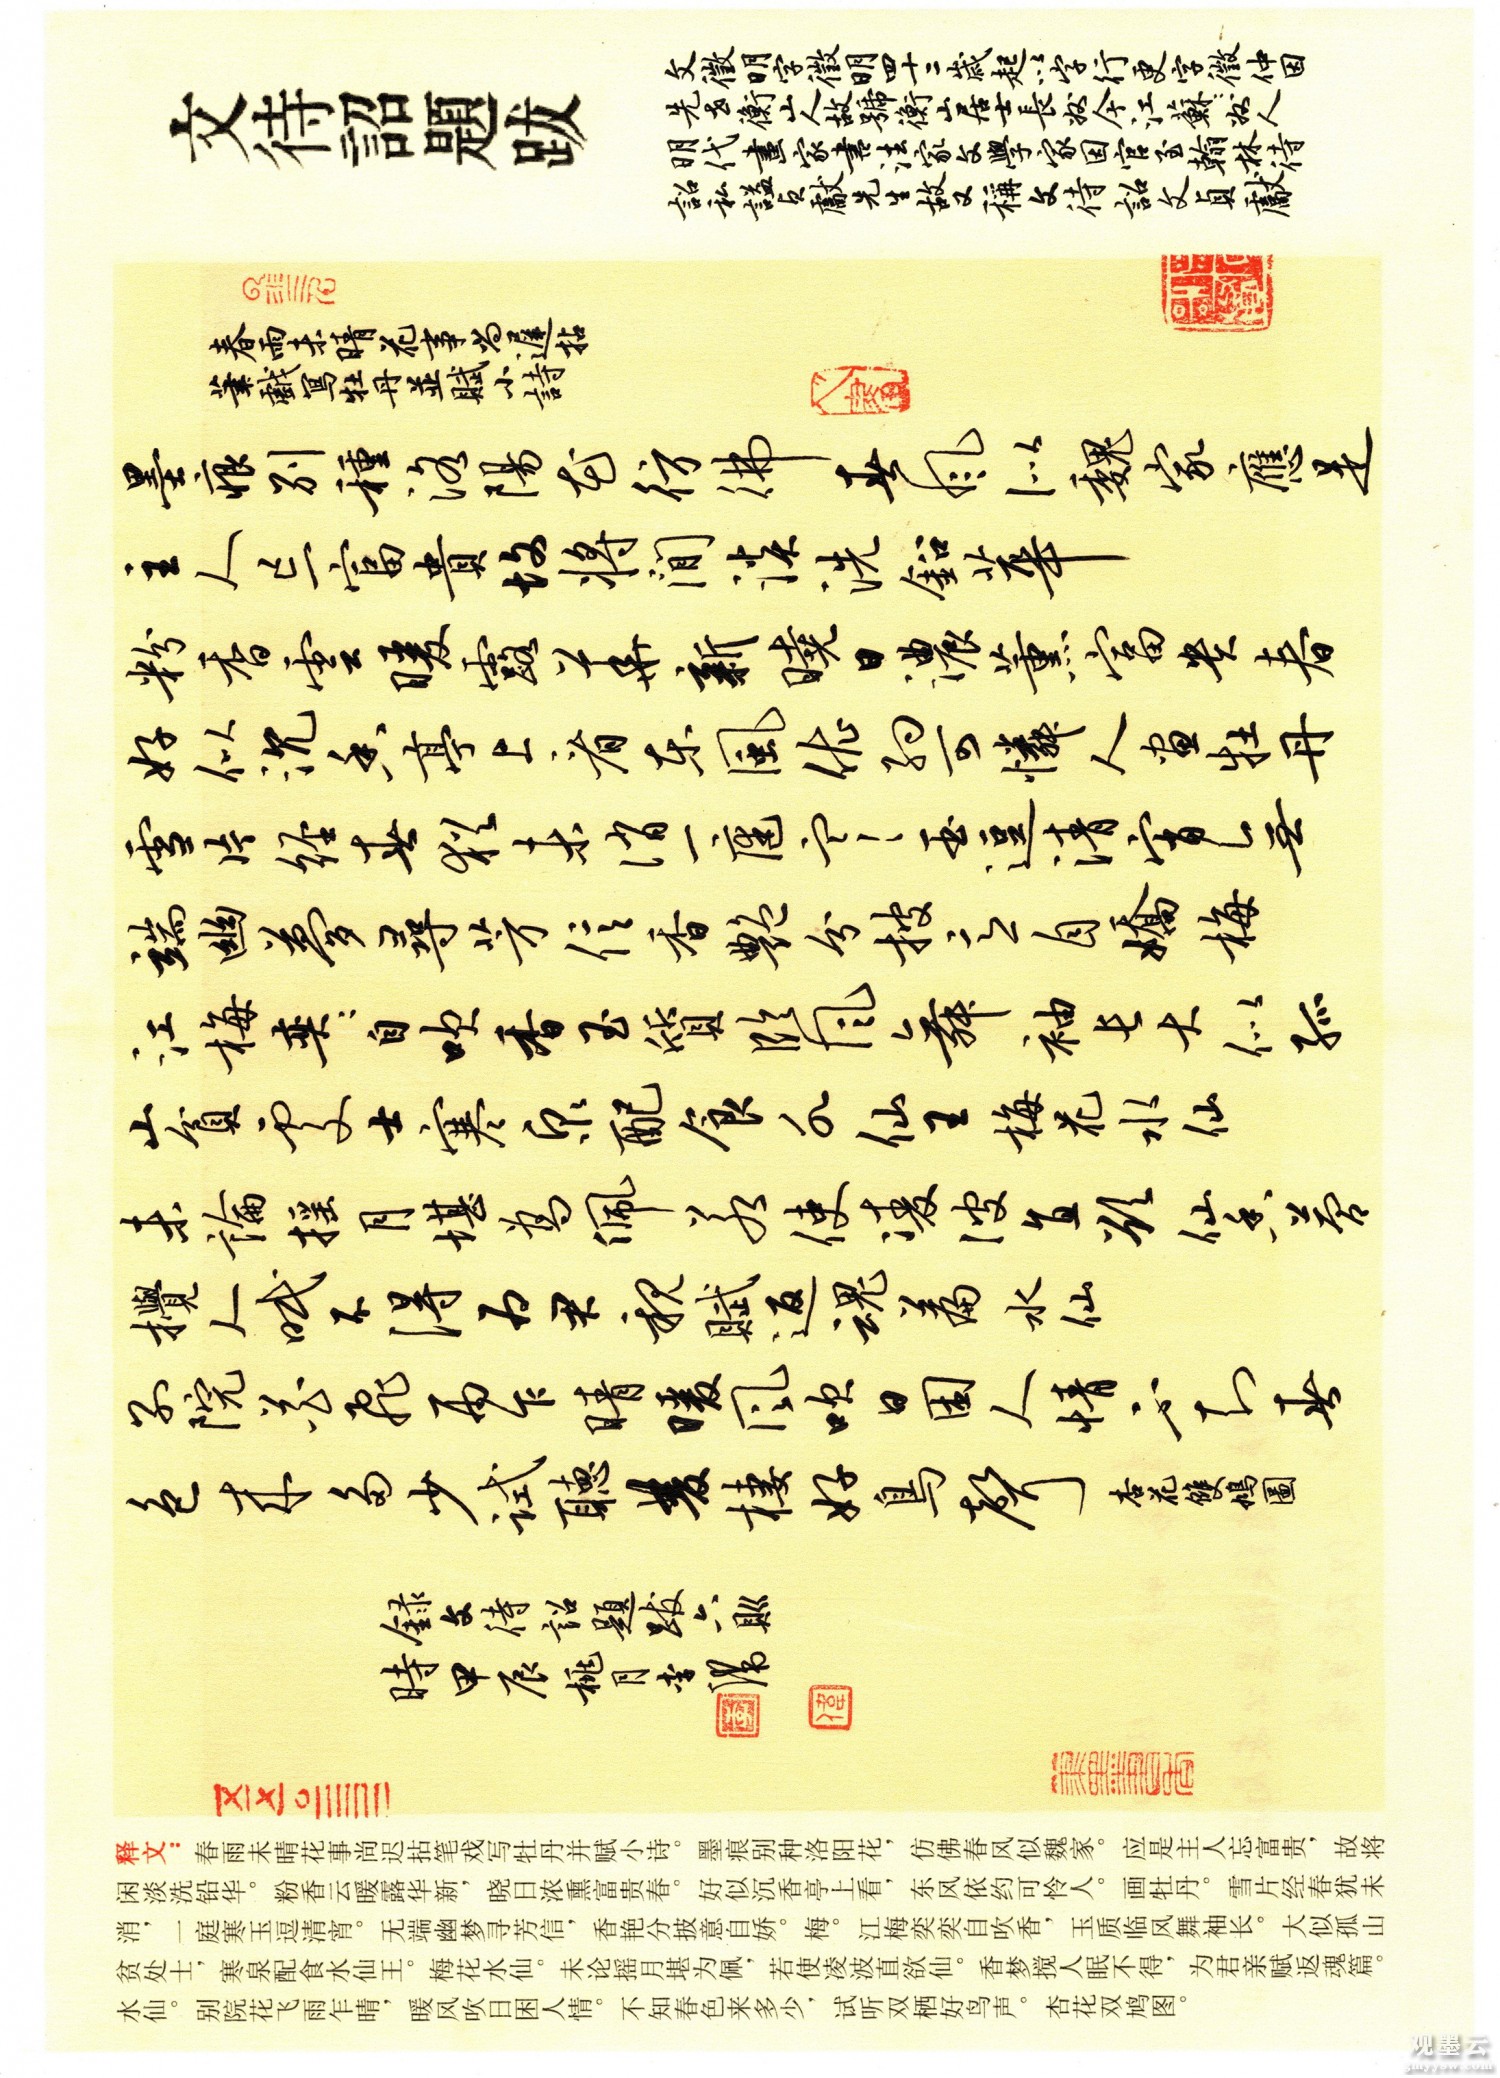 文待詔題跋
文徵明字徵明四十二歲起以字行更字徵仲因
先世衡山人故號衡山居士長州今江蘇蘇州人
明代畫家書法家文學家因官至翰林待
詔私謚貞獻先生故又稱文待詔文貞獻
春雨未晴花事尚遲拈
筆戲寫牡丹並賦小詩
墨痕別種洛陽花彷彿春風似魏家應是
主人忘富貴故將閒淡洗鉛華
粉香雲暖露華新曉日濃薰富貴春
好似沉香亭上看東風依約可憐人畫牡丹
雪片經春猶未消一庭寒玉逗清宵無
端幽夢尋芳信香艷分披意自嬌梅
江梅奕奕自吹香玉質臨風舞袖長大似孤
山貧處士寒泉配食水仙王梅花水仙
未論摇月堪為佩若使凌波直欲仙香夢
攪人眠不得為君親賦返魂篇水仙
別院花飛雨乍晴暖風吹日困人情不知春
色來多少試聽雙棲好鳥聲 杏花雙鳩圖
錄文待詔題跋六則
時甲辰桃月李
释文：春雨未晴花事尚迟拈笔戏写牡丹并赋小诗。墨痕别种洛阳花，仿佛春风似魏家。应是主人忘富贵，故将
闲淡洗铅华。粉香云暖露华新，晓日浓熏富贵春。好似沉香亭上看，东风依约可怜人。画牡丹。雪片经春犹未
消，一庭寒玉逗清宵。无端幽梦寻芳信，香艳分披意自娇。梅。江梅奕奕自吹香，玉质临风舞袖长。大似孤山
贫处士，寒泉配食水仙王。梅花水仙。未论摇月堪为佩，若使凌波直欲仙。香梦搅人眠不得，为君亲赋返魂篇。
水仙。别院花飞雨乍晴，暖风吹日困人情。不知春色来多少，试听双栖好鸟声。杏花双鸠图。
观墨云